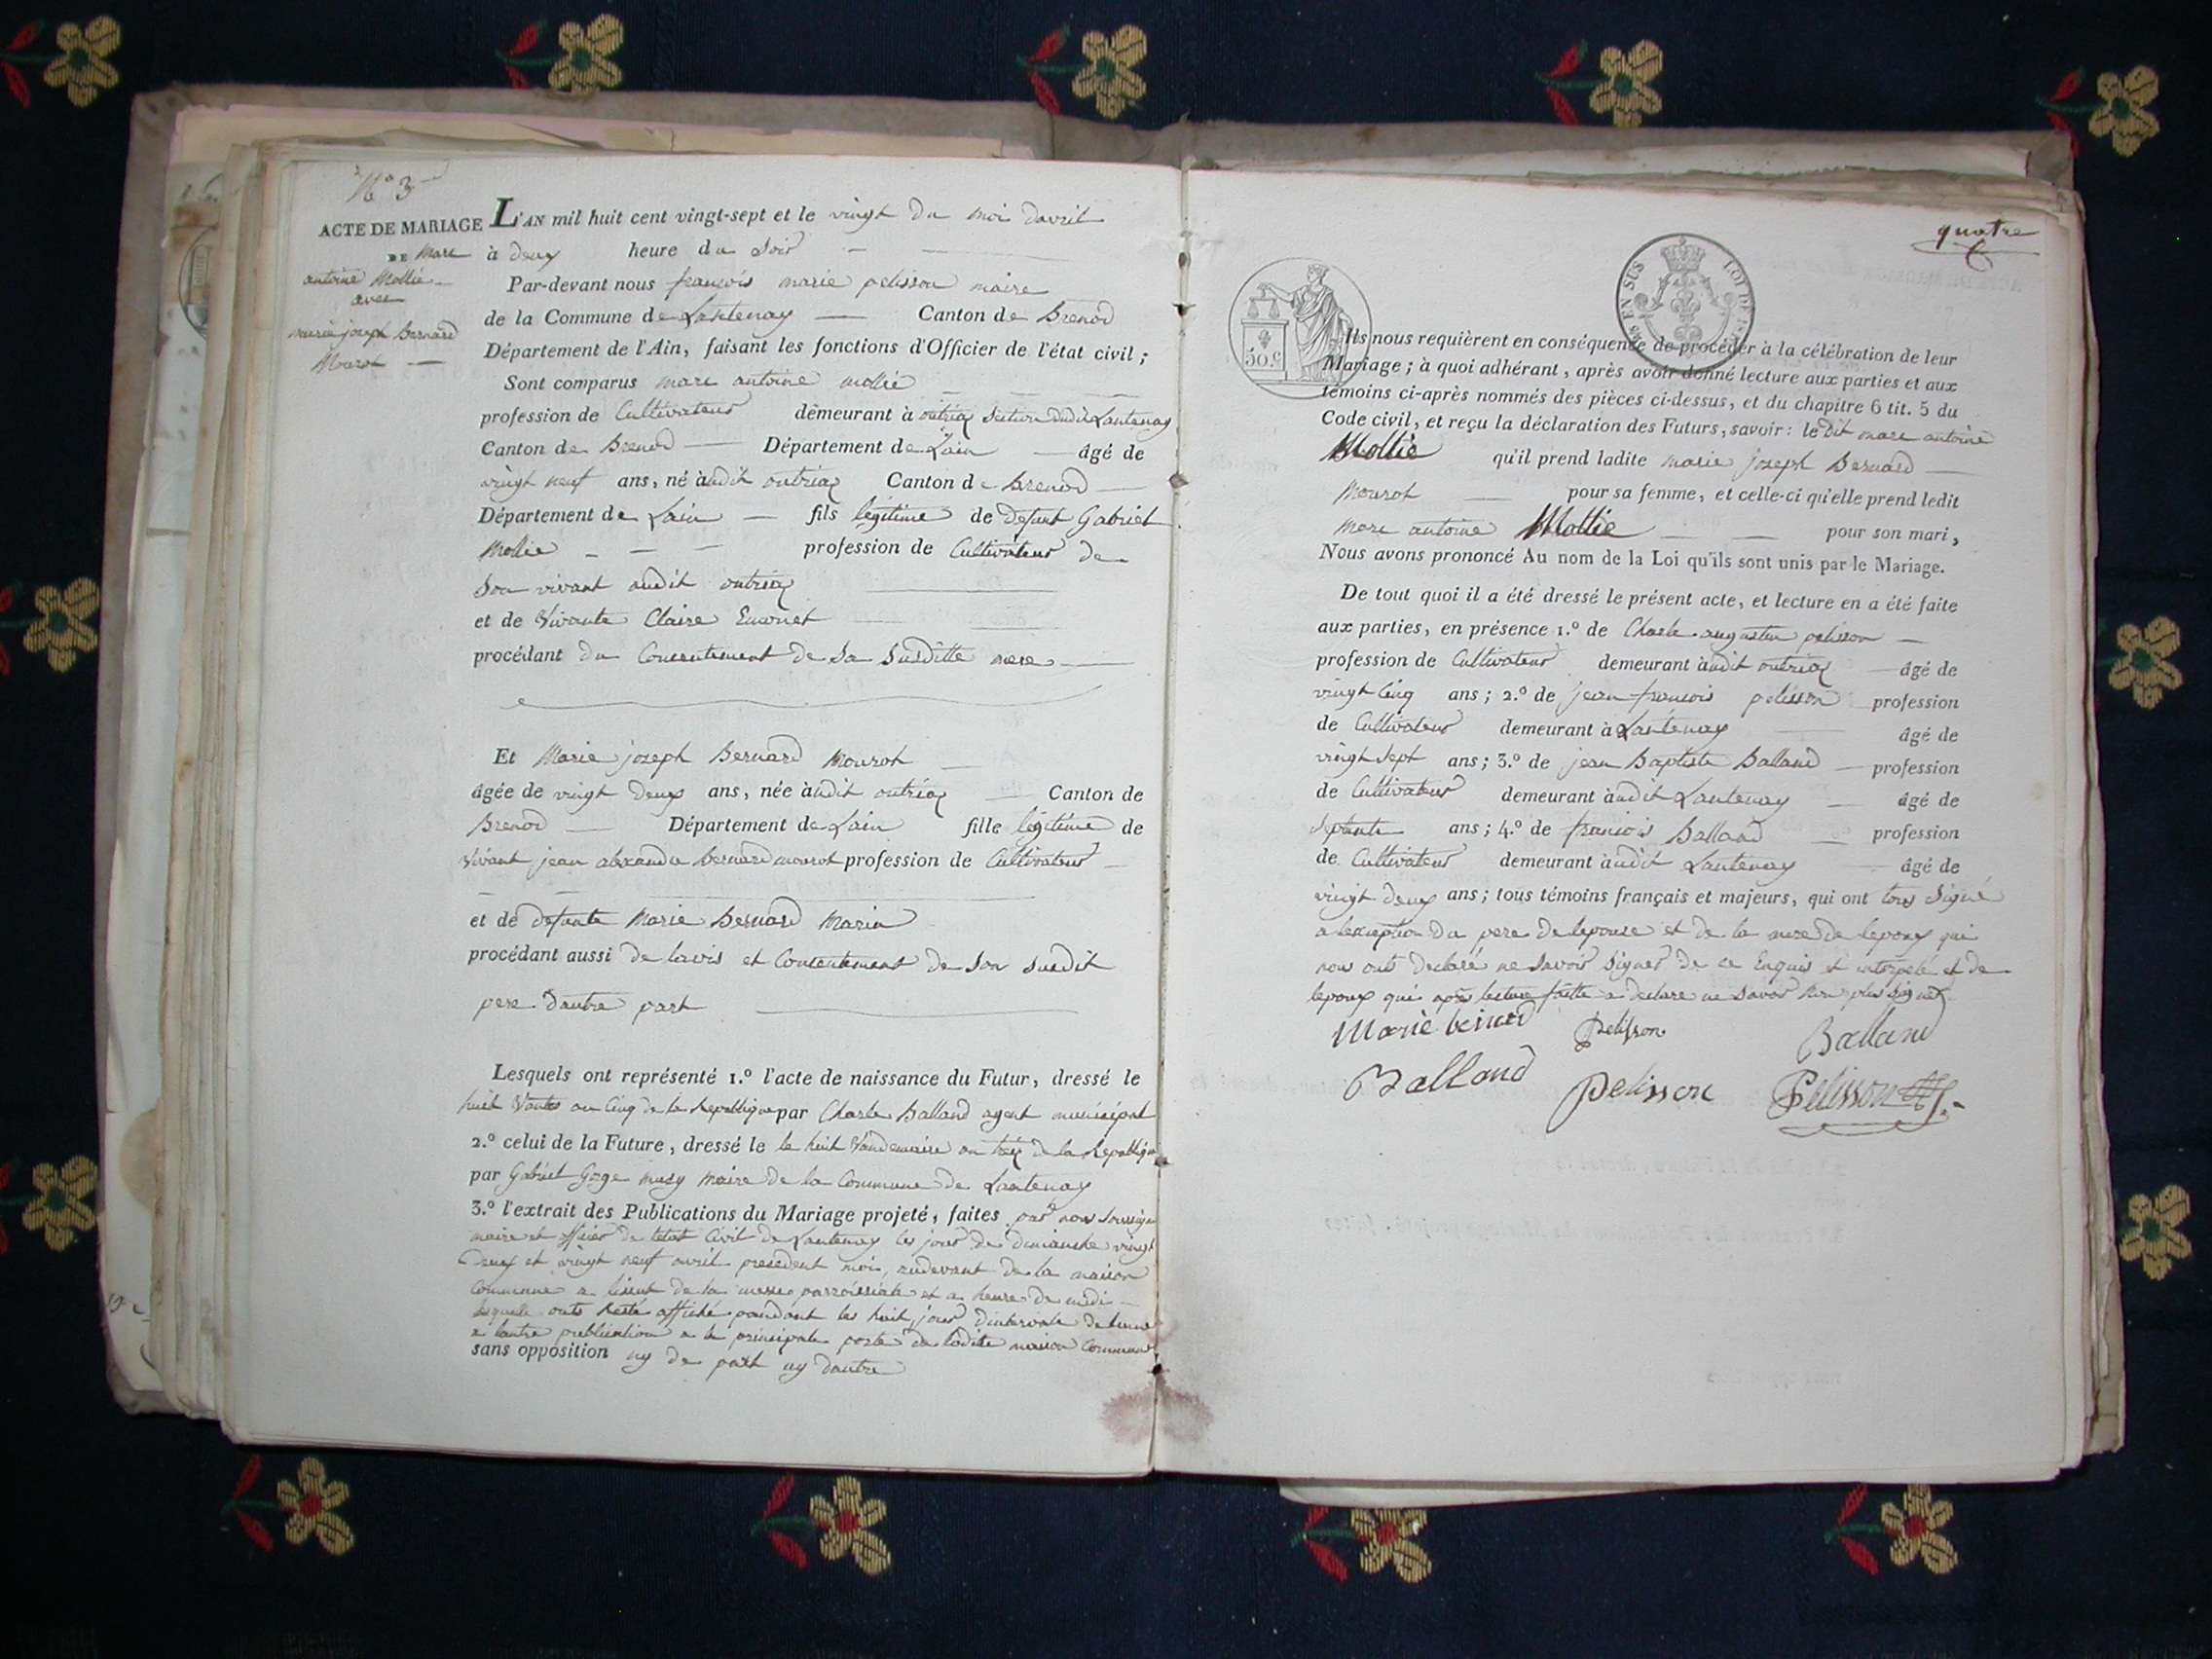 N° 3
ACTE DE MARIAGE
DE Marc
antoine Mollie
avec
marie joseph Bernard
Mourot
L'AN mil huit cent vingt-sept et le vingt du moi davril
à deux heure du Soir
Par-devant nous francois marie pelisson maire
de la Commune de Lantenay Canton de Brenod
Département de l'Ain, faisant les fonctions d'Officier de l'état civil;
Sont comparus marc antoine mollie
profession de Cultivateur demeurant à outriaz Section dudit Lantenay
Canton de Brenod Département de Lain âgé de
vingt neuf ans, né à audit outriaz Canton de Brenod
Département de Lain fils légitime de defunt Gabriel
Mollie profession de Cultivateur de
Son vivant audit outriaz
et de Vivante Claire Emonet
procédant du Consentement de Sa Susditte mere
Et Marie joseph Bernard Mourot
âgée de vingt deux ans, née à audit outriaz Canton de
Brenod Département de Lain fille légitime de
Vivant jean alexandre bernard mourot profession de Cultivateur
et de defunte Marie Bernard Marin
procédant aussi de lavis et Consentement de Son Susdit
pere dautre part
Lesquels ont représenté 1.° l'acte de naissance du Futur, dressé le
huit Vantos an Cinq de la Republique par Charle Balland agent municipal
2.° celui de la Future, dressé le le huit Vandemaire an de la Republique
par Gabriel Goge mary maire de la Commune de Lantenay
3.° l'extrait des Publications du Mariage projeté, faites par nous Soussigné
maire et officier de letat Civil de Lantenay les jour de dimanche vingt
Deux et vingt neuf avril présédent moi, audevant de la maison
Commune a lisent de la messe parroissiale et a heure de midi
lesquels onts Resté affiché pandant les huit jour dintervale de lune
a lautre publication a la principale porte de ladite maison Commune
sans opposition ny de part ny dautre
quatre
EN SUS LOI DE
50.c
Ils nous requièrent en conséquence de procéder à la célébration de leur
Mariage; à quoi adhérant, après avoir donné lecture aux parties et aux
témoins ci-après nommés des pièces ci-dessus, et du chapitre 6 tit. 5 du
Code civil, et reçu la déclaration des Futurs, savoir: le dit marc antoine
Mollie qu'il prend ladite marie joseph Bernard
Mourot pour sa femme, et celle-ci qu'elle prend ledit
Marc antoine Mollie pour son mari,
Nous avons prononcé Au nom de la Loi qu'ils sont unis par le Mariage.
De tout quoi il a été dressé le présent acte, et lecture en a été faite
aux parties, en présence 1.° de Charle augustin pelisson
profession de Cultivateur demeurant à audit outriaz âgé de
vingt Cinq ans; 2.° de jean francois pelisson profession
de Cultivateur demeurant à Lantenay âgé de
vingt Sept ans; 3.° de jean Baptiste Balland profession
de Cultivateur demeurant à audit Lantenay âgé de
Septante ans; 4.° de francois Balland profession
de Cultivateur demeurant à audit Lantenay âgé de
vingt deux ans; tous témoins français et majeurs, qui ont tous Signé
a lexception du pere de lepouse et de la mere de lepoux qui
nous onts declaré ne Savoir Signer de ce Enquis et interpelé et de
lepoux qui après lecture faitte a declare ne Savoir non plus Signer
Marie bernard Pelisson Balland
Balland Pelisson Pelisson